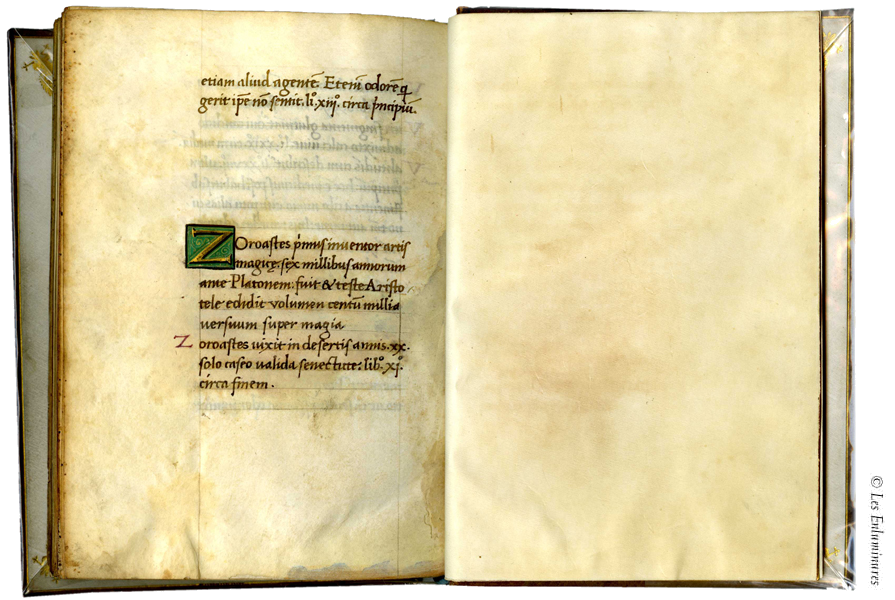 etiam aliud agentē. Etenī odorē q̄
gerit ip̄e nō sentit. li°. xiij°. circa p̄ncipiū.
Zoroastes p̄mus inventor artis
magicę. sex millibus annorum
ante Platonem. fuit & teste Aristo
tele edidit volumen centū millia
versuum super magia
Zoroastes vixit in desertis annis .xx.
solo caseo valida senectute: lib°. xj°.
circa finem.
© Les Enluminures